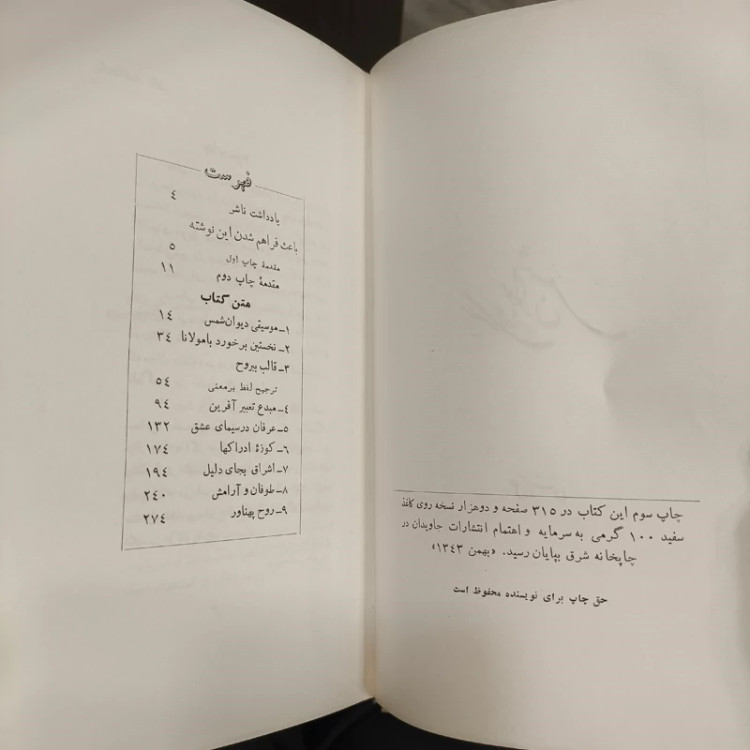 چاپ سوم این کتاب در ۳۱۵ صفحه و دوهزار نسخه روی کاغذ
سفید ۱۰۰ گرمی به سرمایه و اهتمام انتشارات جاویدان در
چاپخانه شرق بپایان رسید. «بهمن ۱۳۴۳»
حق چاپ برای نویسنده محفوظ است
فهرست
یادداشت ناشر ۴
باعث فراهم شدن این نوشته
مقدمهٔ چاپ اول ۵
مقدمهٔ چاپ دوم ۱۱
متن کتاب
۱ـ موسیقی دیوان‌شمس ۱۴
۲ـ نخستین برخورد بامولانا ۳۴
۳ـ قالب بیروح
ترجیح لفظ برمعنی ۵۴
۴ـ مبدع تعبیر آفرین ۹۴
۵ـ عرفان درسیمای عشق ۱۳۲
۶ـ کوزهٔ ادراکها ۱۷۴
۷ـ اشراق بجای دلیل ۱۹۴
۸ـ طوفان و آرامش ۲۴۰
۹ـ روح پهناور ۲۷۴